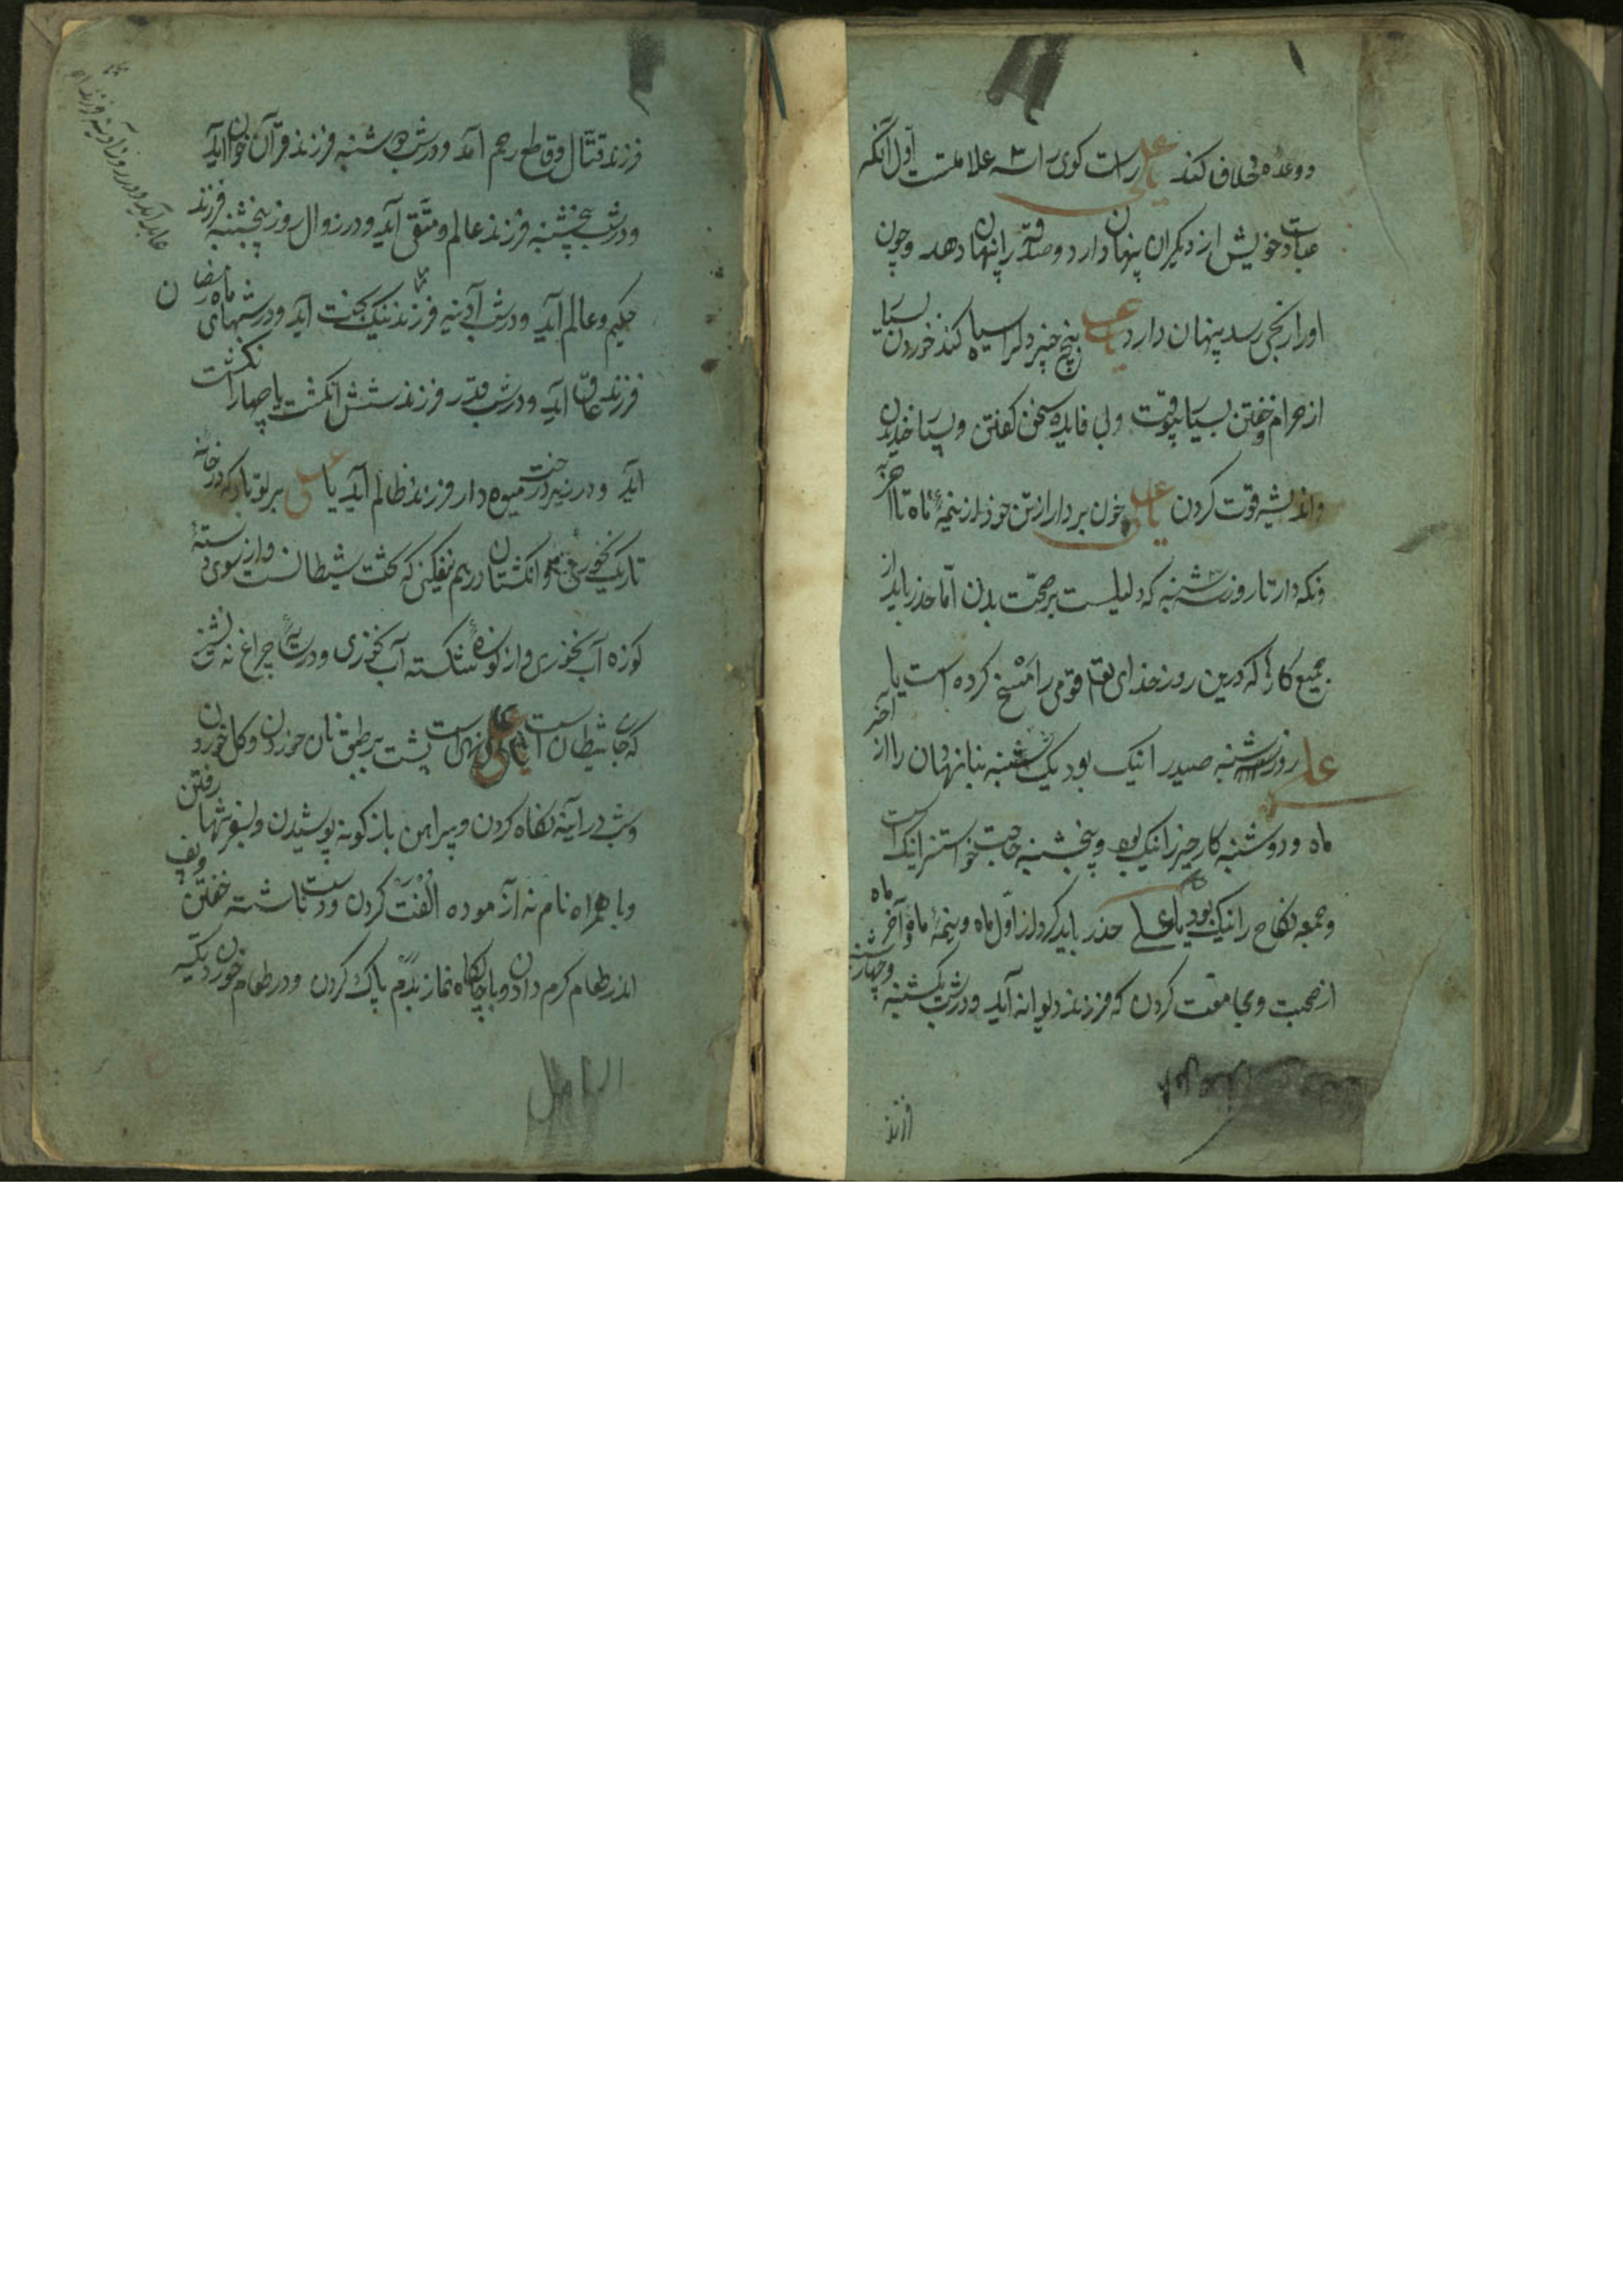 و وعده خلاف کند یا علی راست کوی را ۳ علامتست اول آنکه
عبادت خویش از دیکران پنهان دارد و صدقه را پنهان دهد و چون
او را رنجی رسد پنهان دارد یا علی پنج چیز دلرا سیاه کند خوردن بسیار
از حرام و خفتن بسیار بیوقت و بی فایده سخن کفتن و بسیار خندیدن
و اندیشه قوت کردن یا علی خون بردار از تن خود از نیمهٔ ماه تا آخر
و نکه دار تا روز سه شنبه که دلیلست بر صحت بدن اما حذر باید از
جمیع کارها که درین روز خدای تعم قومی را مسخ کرده است یا
علی روز شنبه صید را نیک بود یک شنبه بنا نهادن را از آخر
ماه و دوشنبه کار خیر را نیک بود و پنجشنبه حاجت خواستن را نیک است
و جمعه نکاح را نیک بود یا علی حذر باید کرد از اول ماه و نیمهٔ ماه و آخر ماه
از صحبت و مجامعت کردن که فرزند دیوانه آید و در شب یکشنبه و چهارشنبه
فرزند
فرزند قتال و قاطع رحم آمد و در شب دوشنبه فرزند قرآن خوان آید
و در شب پنجشنبه فرزند عالم و متقی آید و در زوال روز پنجشنبه فرزند
حکیم و عالم آید و در شب آدینه فرزند نیک بخت آید و در شبهای ماه رمضان
فرزند عاق آید و در شب قدر فرزند شش انکشت یا چهار انکشت
آید و در زیر درخت میوه دار فرزند ظالم آید یا علی بر تو باد که در خانه
تاریک نخوری و انکشتان در هم نیفکنی که نحت شیطانست و از سوی دسته
کوزه آب نخوری و از کوزهٔ شکسته آب نخوری و در سایهٔ چراغ نه نشینی
که جای شیطان است یا علی نهی است پشت بر طبق نان خوردن و کل خوردن
و شب در آینه نکاه کردن و پیراهن باز کونه پوشیدن و بسفر تنها رفتن
و با همراه نام نه آزموده الفت کردن و دست ناشسته خفتن و پف
اندر طعام کرم دادن و با جایکاه نماز بدم پاک کردن و در طعام خوردن تکیه
عابد آید و در روز آدینه فرزند